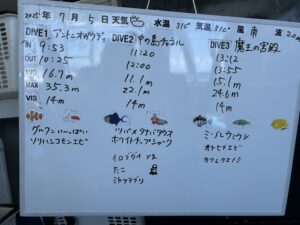 2025年 7月 5日 天気 水温 31° 気温 31° 風 南 波 2.0m
DIVE1 DIVE2 中の島チャネル DIVE3 魔王の宮殿
IN 9:53 11:20 13:12
OUT 10:25 12:00 13:55
AVG 16.7m 11.1m 15.1m
MAX 35.3m 22.1m 24.6m
VIS 14m 14m 14m
グルクンいっぱい ツバメタナバタウオ ミゾレウミウシ
ソリハシコモンエビ ホワイトチップシャーク オトヒメエビ
イロブダイ yg カクレクマノミ
たこ
ミヤケテグリ